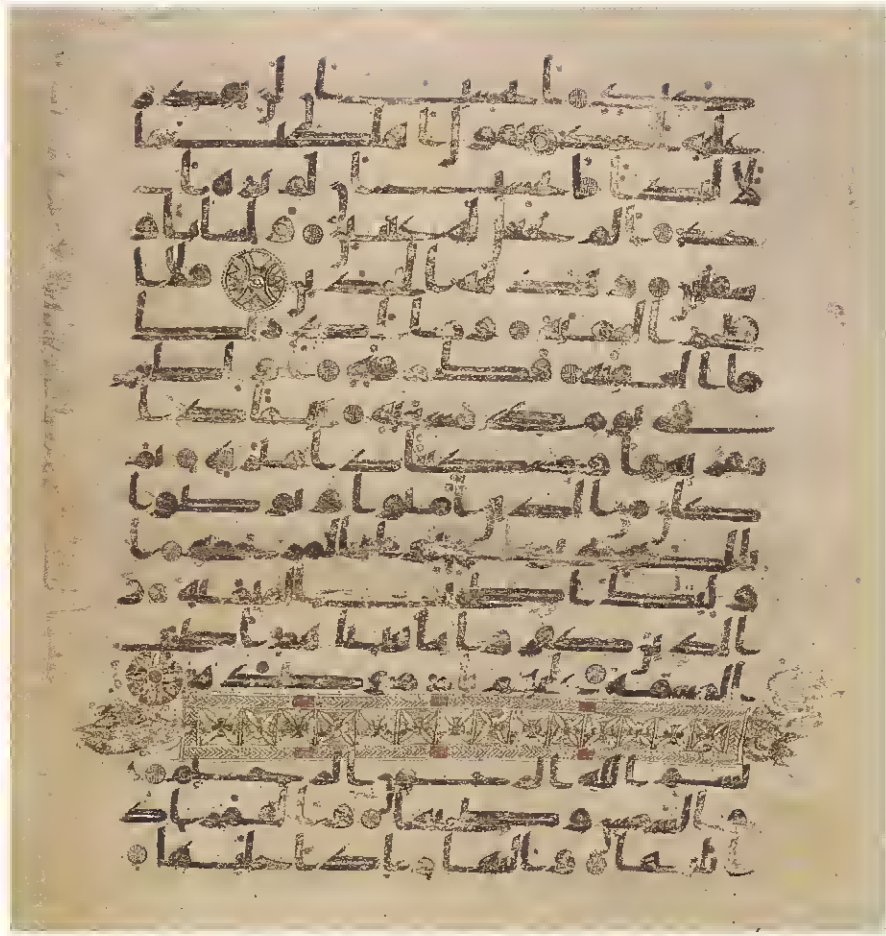 كبد ايحسب ان لن يقدر
عليه احد يقول اهلكت ما
لا لبدا ايحسب ان لم يره ا
حد الم نجعل له عينين ولسانا و
شفتين وهدينه النجدين فلا ا
قتحم العقبة وما ادريك
ما العقبة فك رقبة او اطعم
في يوم ذي مسغبة يتيما ذا
مقربة او مسكينا ذا متربة ثم
كان من الذين امنوا وتواصوا
بالصبر وتواصوا بالمرحمة ا
ولئك اصحب الميمنة و
الذين كفروا بايتنا هم اصحب
المشئمة عليهم نار موصدة
بسم الله الرحمن الرحيم
والشمس وضحيها والقمر ا
ذا تليها والنهار اذا جليها